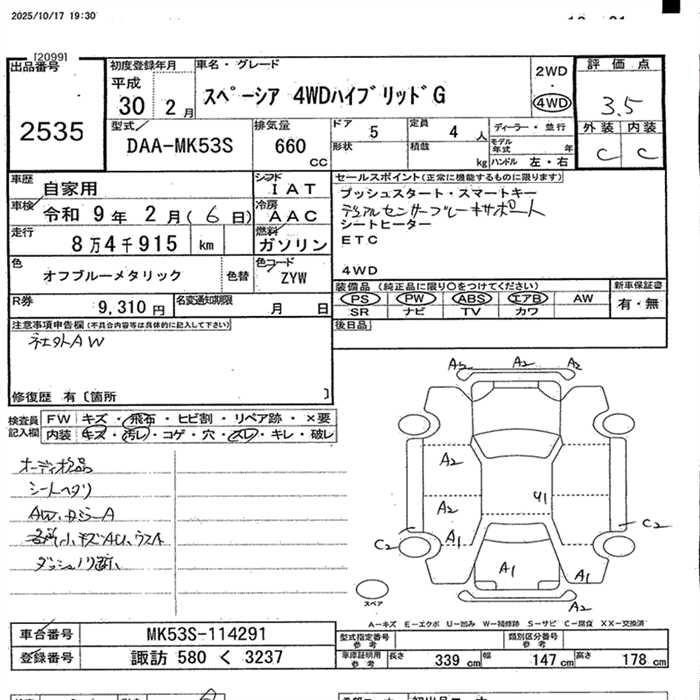 2025/10/17 19:30
[2099]
出品番号
2535
初度登録年月
平成
30 2月
車名・グレード
スペーシア 4WDハイブリッドG
2WD
・
4WD
評価点
3.5
外装 内装
C C
型式
DAA-MK53S
排気量
660
CC
ドア 5
定員 4 人
形状
積載 kg
ディーラー・並行
モデル年式 年
ハンドル 左・右
車歴 自家用
シフト IAT
車検 令和 9年 2月(6日)
冷房 AAC
走行 8万4千915 km
燃料 ガソリン
色 オフブルーメタリック
色替
色コード ZYW
R券 9,310円
名変通知期限 月 日
セールスポイント(正常に機能するものに限ります)
プッシュスタート・スマートキー
デュアルセンサーブレーキサポート
シートヒーター
ETC
4WD
装備品(純正品に限り○をつけてください)
PS PW ABS エアB AW
SR ナビ TV カワ
新車保証書
有・無
後日品
注意事項申告欄(不具合内容等は具体的に記入して下さい)
社外AW
修復歴 有〔箇所 〕
検査員記入欄
FW キズ・飛石・ヒビ割・リペア跡・×要
内装 キズ・汚レ・コゲ・穴・スレ・キレ・破レ
シートヘタリ
A2 A2 A2
A2
A2 A2
U1
A1
C2 C2
A1 A1
A2
スペア
A-キズ E-エクボ U-凹み W-補修跡 S-サビ C-腐食 XX-交換済
車台番号 MK53S-114291
登録番号 諏訪 580 く 3237
型式指定番号参考
類別区分番号参考
車庫証明用参考 長さ 339cm 幅 147cm 高さ 178cm